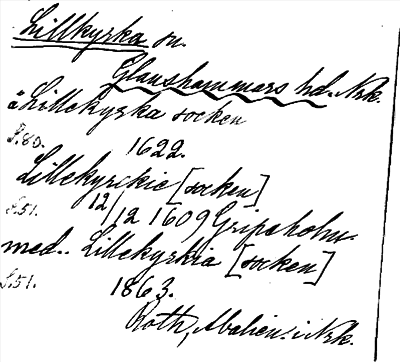 Lillkyrka sn.
Glanshammars hd. Nrk.
å Lillekyrka socken
S. 80. 1622.
Lillekyrckie [socken]
S. 51. 12/12 1609 Gripsholm.
med.. Lillekyrkia [socken]
S. 51. 1863.
Roth, Abalien. i Nrk.